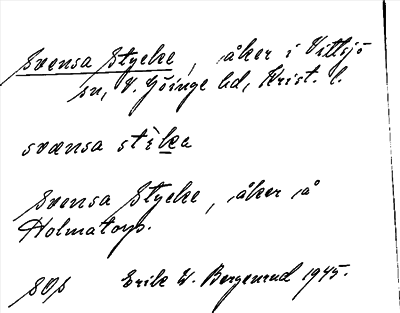 Svensa Stycke, åker i Vittsjö
sn, V. Göinge hd, Krist. l.
svænsa stèka
Svensa Stycke, åker å
Holmatorp.
Erik W. Bergenrud 1945.